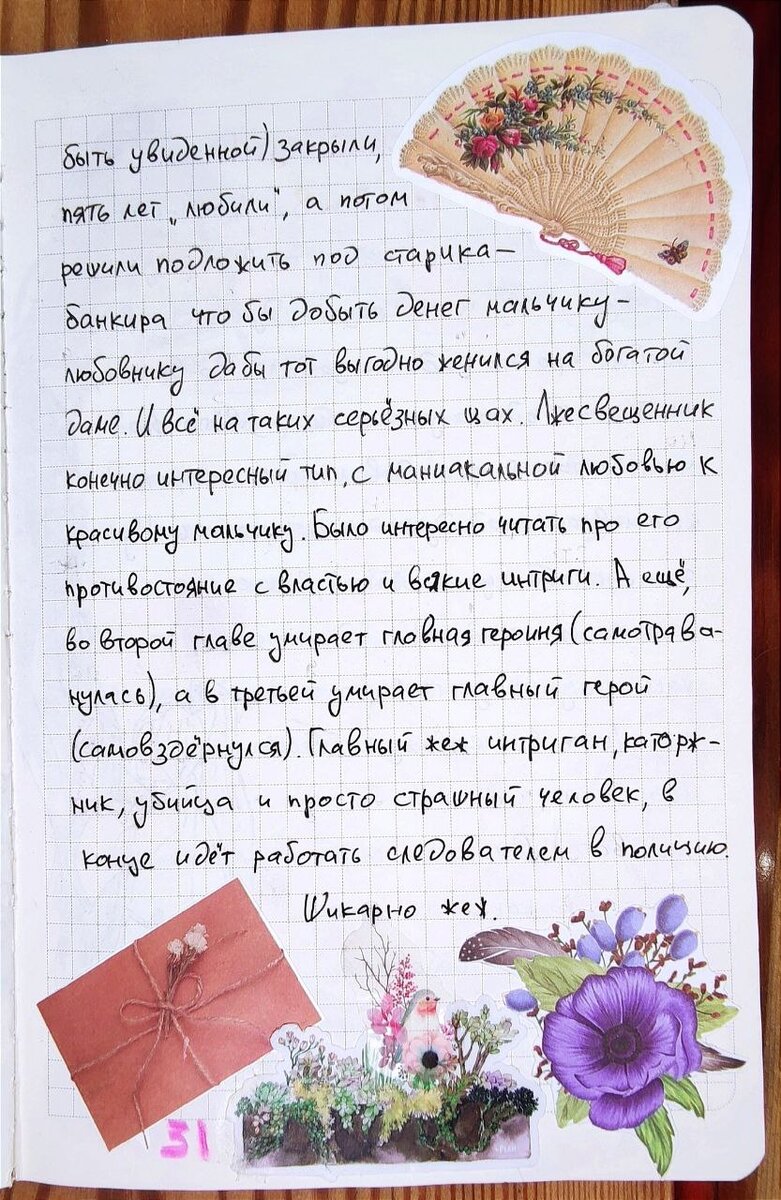 быть увиденной) закрыли,
пять лет „любили", а потом
решили подложить под старика-
банкира что бы добыть денег мальчику-
любовнику дабы тот выгодно женился на богатой
даме. И всё на таких серьёзных щах. Лжесвещенник
конечно интересный тип, с маниакальной любовью к
красивому мальчику. Было интересно читать про его
противостояние с властью и всякие интриги. А ещё,
во второй главе умирает гловная героиня (самотрава-
нулась), а в третьей умирает главный герой
(самовздёрнулся). Главный жеж интриган, каторж-
ник, убийца и просто страшный человек, в
конце идёт работать следователем в полицию.
Шикарно жеж.
31